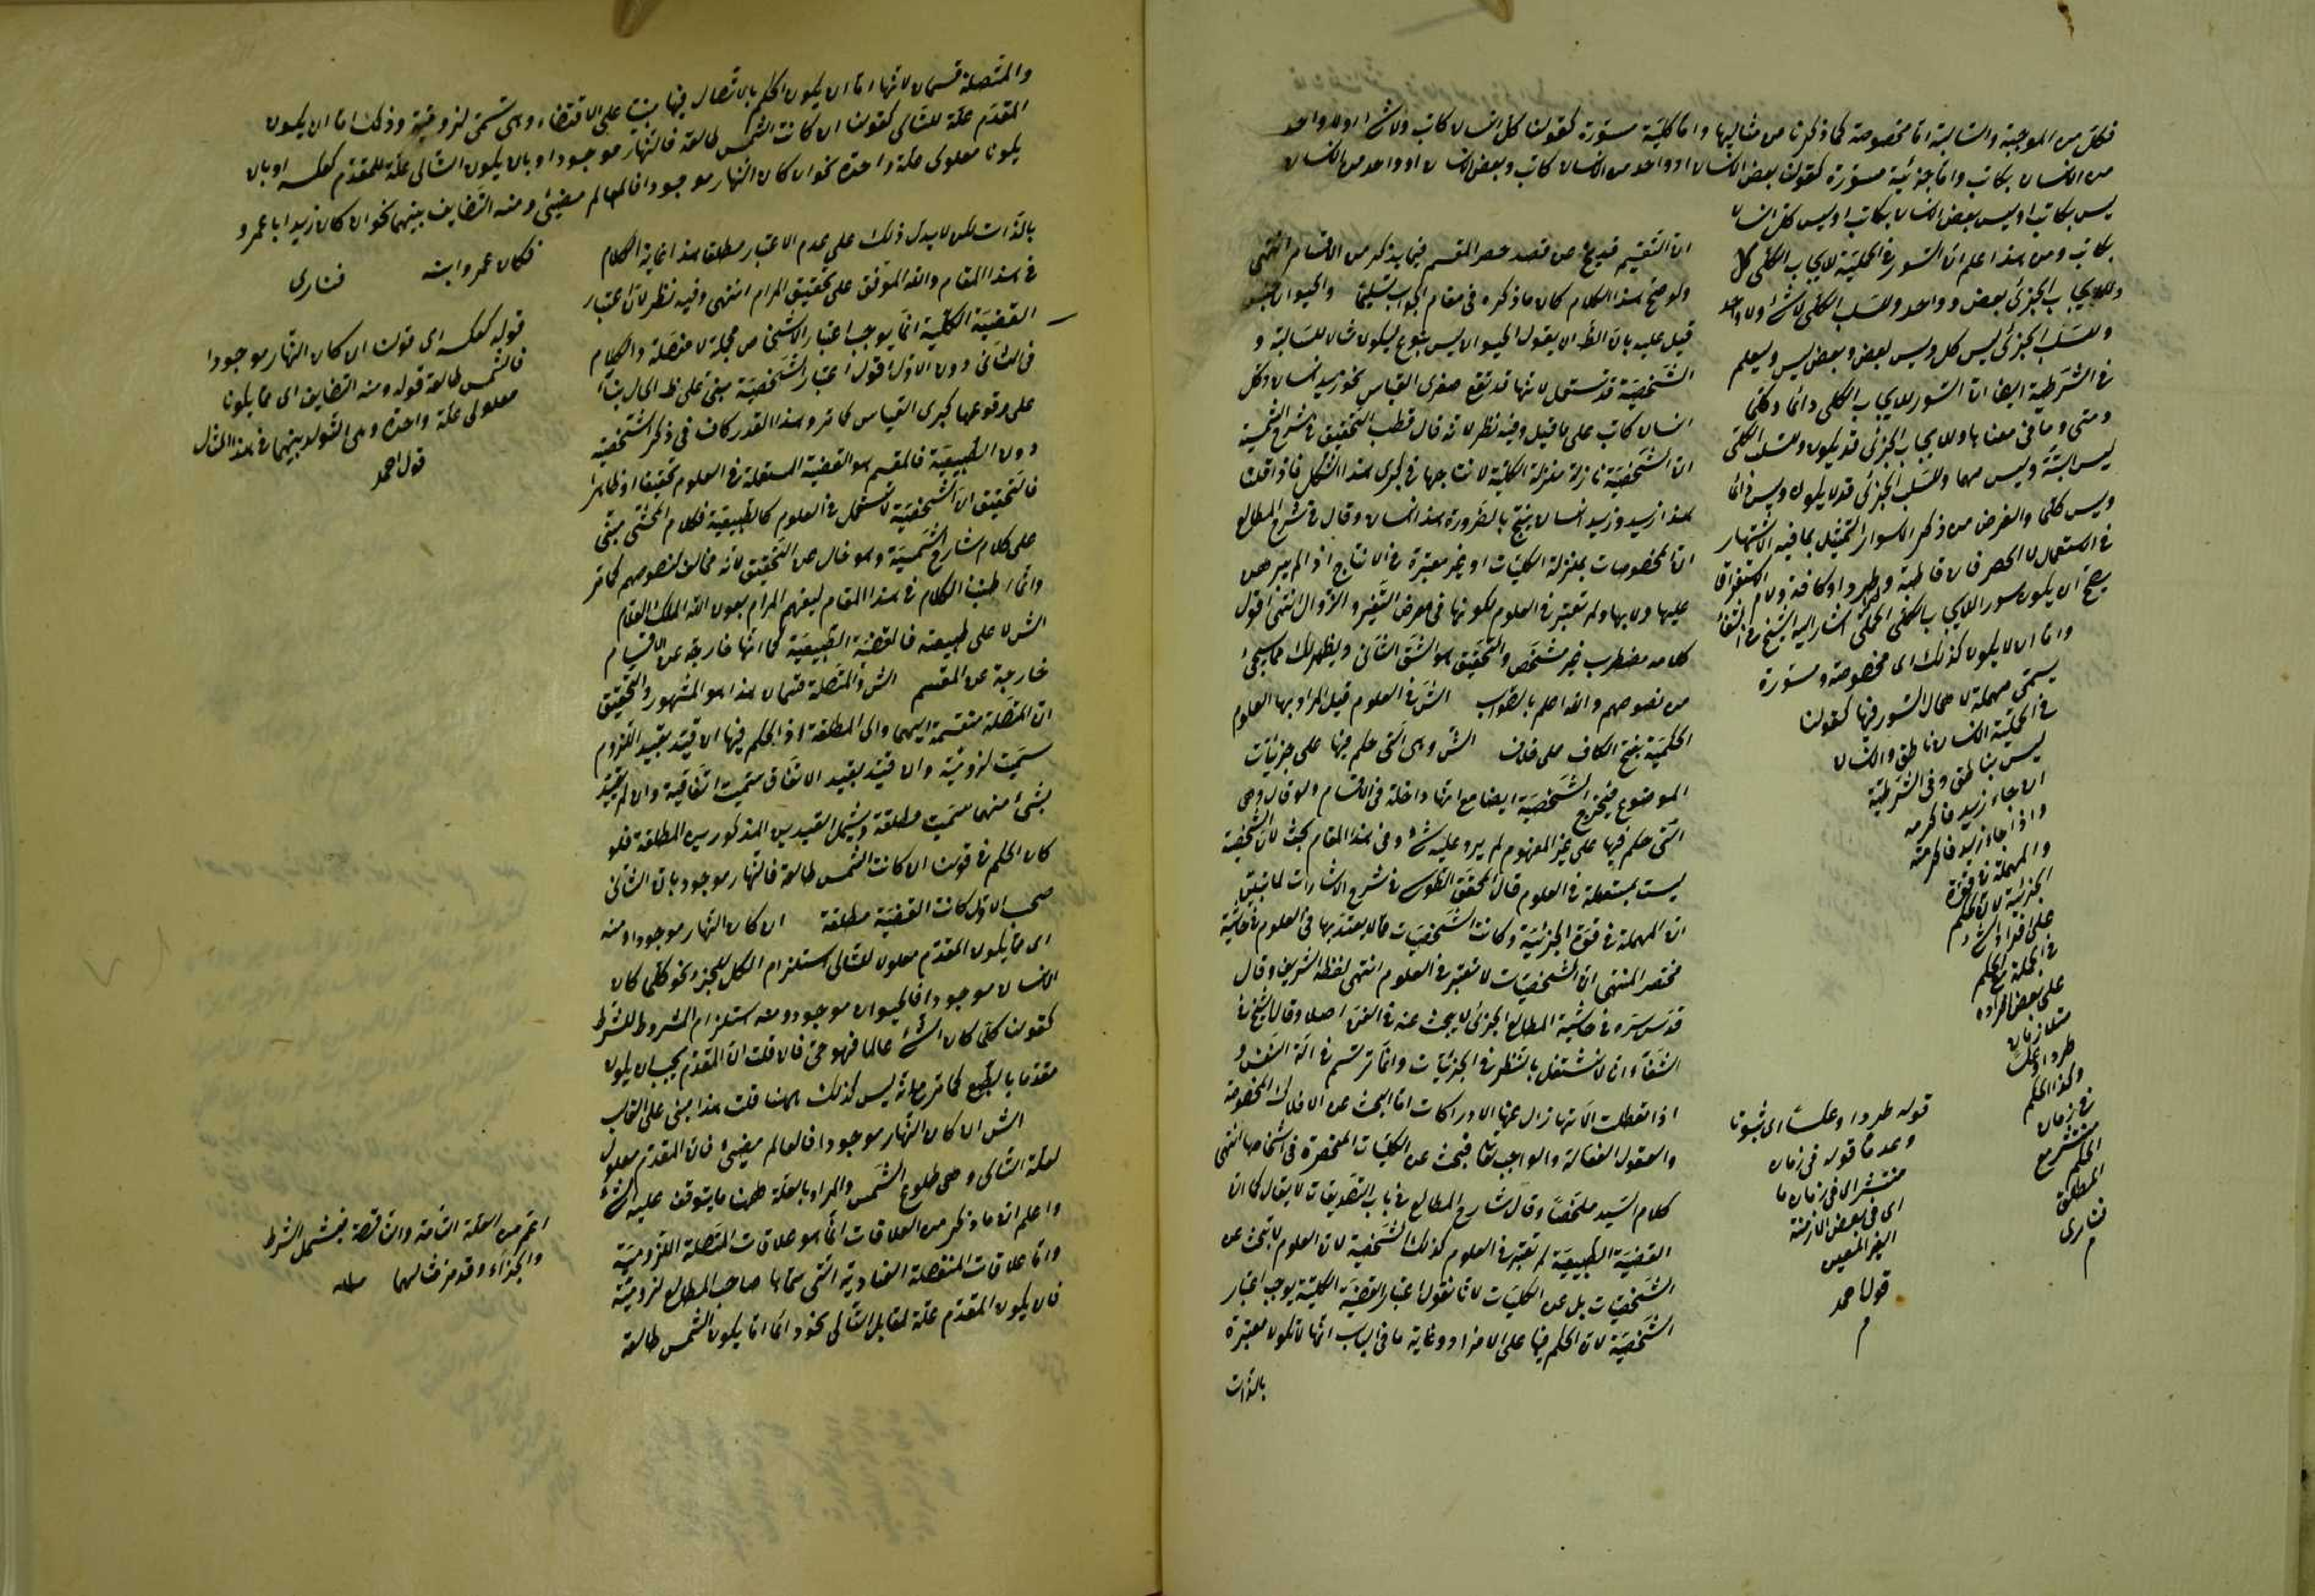 فكل من الموجبة والسالبة اما مخصوصة كما ذكرنا من مثاليها واما كلية مسورة كقولنا كل انسان كاتب ولا شئ او ولا واحد
من الانسان بكاتب واما جزئية مسورة كقولنا بعض الانسان او واحد من الانسان كاتب وبعض الانسان او واحد من الانسان
ليس بكاتب او ليس بعض الانسان بكاتب او ليس كل انسان
بكاتب ومن هذا اعلم ان السور في الحملية للايجاب الكلي كل
وللايجاب الجزئي بعض وواحد وللسلب الكلي لا شئ ولا واحد
وللسلب الجزئي ليس كل وليس بعض وبعض ليس وليعلم
في الشرطية ايضا ان السور للايجاب الكلي دائما وكلما
ومتى وما في معناها وللايجاب الجزئي قد يكون وللسلب الكلي
ليس البتة وليس مهما وللسلب الجزئي قد لا يكون وليس دائما
وليس كلما والغرض من ذكر الاسوار التمثيل بما فيه الاشتهار
في الاستعمال لا الحصر فان قاطبة وطرا وكافة ولام الاستغراق
يصح ان يكون سور الايجاب الكلي الحملي اشار اليه الشيخ في الشفاء
واما ان لا يكون كذلك اى مخصوصة ومسورة
يسمى مهملة لاهمال السور فيها كقولنا
في الحملية الانسان ناطق والانسان
ليس بناطق وفي الشرطية
ان جاء زيد فاكرمه
واذا جاء زيد فاكرمته
والمهملة في قوة
الجزئية لان الحكم
على افراد الشئ
في الجملة مع الحكم
على بعض افراده
متلازمان
طردا وعكسا
وكذا الحكم
في زمان
منتشر مع
الحكم
المطلق
فنارى
م
قوله طردا وعكسا اى ثبوتا
وعدما قوله في زمان
منتشر اى في زمان ما
اى في بعض الازمنة
الغير المعين
قول احمد
م
ان التقسيم قديخ عن قصد حصر المقسم فيما يذكر من الاقسام انتهى
ولو صح هذا الكلام كان ما ذكره في مقام الجواب تسليما والحيوان جنس
قيل عليه بان الظ ان يقول الحيوان ليس بنوع ليكون مثالا للسالبة و
الشخصية قد تستعمل لانها قد تقع صغرى القياس نحو زيد انسان وكل
انسان كاتب على ما قيل وفيه نظر لانه قال قطب التحقيق في شرح الشمسية
ان الشخصية نازلة منزلة الكلية لانتاجها في كبرى هذا الشكل فاذا قلت
هذا زيد وزيد انسان ينتج بالضرورة هذا انسان وقال في شرح المطالع
ان المخصوصات بمنزلة الكليات او غير معتبرة في الانتاج اذ لم يبرهن
عليها ولا بها ولم تعتبر في العلوم لكونها في معرض التغير والزوال انتهى اقول
كلامه مضطرب غير مشخص والتحقيق هو الشق الثاني ويظهر لك مما سيجئ
من نصوصهم والله اعلم بالصواب الش في العلوم قيل المراد بها العلوم
الحكمية بفتح الكاف على خلاف الش وهى التى حكم فيها على جزئيات
الموضوع فيخرج الشخصية ايضا مع انها داخلة في الاقسام ولو قال وهى
التى حكم فيها على غير المفهوم لم يرد عليه شئ وفى هذا المقام بحث لان الشخصية
ليست بمستعملة في العلوم قال المحقق الطوسى في شرح الاشارات لما تبين
ان المهملة في قوة الجزئية وكانت الشخصيات مما لا يعتد بها في العلوم في حاشية
مختصر المنتهى ان الشخصيات لا تعتبر في العلوم انتهى لفظه الشريف وقال
قدس سره في حاشية المطالع الجزئي لا يبحث عنه في الفن اصلا وقال الشيخ في
الشفاء انا لا نشتغل بالنظر في الجزئيات وانما ترتسم في آلة النفس و
اذا تعطلت الآلتها زال عنها الادراكات اما البحث عن الافلاك المخصوصة
والعقول الفعالة والواجب تعالى فبحث عن الكليات المنحصرة في اشخاصها انتهى
كلام السيد ملخصا وقال شارح المطالع في باب التصديقات لا يقال كما ان
القضية الطبيعية لم تعتبر في العلوم كذلك الشخصية لان العلوم لا تبحث عن
الشخصيات بل عن الكليات لانا نقول اعتبار القضية الكلية يوجب اعتبار
الشخصية لان الحكم فيها على الافراد وغاية ما في الباب انها لا تكون معتبرة
بالذات
والمتصلة قسمان لانها اما ان يكون الحكم بالاتصال فيها مبنيا على الاقتضاء وهى تسمى لزومية وذلك اما ان يكون
المقدم علة للتالى كقولنا ان كانت الشمس طالعة فالنهار موجود او بان يكون التالى علة للمقدم كعكسه او بان
يكونا معلولى علة واحدة نحو ان كان النهار موجودا فالعالم مضيئ ومنه التضايف بينهما نحو ان كان زيد ابا عمرو
فكان عمرو ابنه فنارى
بالذات لكن لا يدل ذلك على عدم الاعتبار مطلقا هذا غاية الكلام
في هذا المقام والله الموفق على تحقيق المرام انتهى وفيه نظر لان اعتبار
القضية الكلية انما يوجب اعتبار الاشخاص مجملة لا مفصلة والكلام
في الثانى دون الاول اقول اعتبار الشخصية مبنى على ظ الحال بناء
على وقوعها كبرى القياس كما مر وهذا القدر كاف في ذكر الشخصية
دون الطبيعية فالمقسم هو القضية المستعملة في العلوم تحقيقا او ظاهرا
فالتحقيق ان الشخصية لا تستعمل في العلوم كالطبيعية فكلام المحشى مبنى
على كلام شارح الشمسية وهو خال عن التحقيق لانه مخالف لنصوصهم كما مر
وانما اطنبنا الكلام في هذا المقام ليفهم المرام بعون الله الملك العلام
الش لا على طبيعته فالقضية الطبيعية كما انها خارجة عن الاقسام
خارجة عن المقسم الش والمتصلة قسمان هذا هو المشهور والتحقيق
ان المتصلة منقسمة اليهما والى المطلقة اذ الحكم فيها ان قيد بقيد اللزوم
سميت لزومية وان قيد بقيد الاتفاق سميت اتفاقية وان لم يقيد
بشئ منهما سميت مطلقة ويشمل القيدين المذكورين المطلقة فلو
كان الحكم في قولنا ان كانت الشمس طالعة فالنهار موجود بان الثانى
صحب الاول كانت القضية مطلقة ان كان النهار موجودا ومنه
اى مما يكون المقدم معلولا للتالى استلزام الكل للجزء نحو كلما كان
الانسان موجودا فالحيوان موجود ومنه استلزام المشروط للشرط
كقولنا كلما كان الشئ عالما فهو حى فان قلت ان المقدم يجب ان يكون
مقدما بالطبع كما مر مع انه ليس كذلك ههنا قلت هذا مبنى على الغالب
الش ان كان النهار موجودا فالعالم مضيئ فان المقدم معلول
لعلة التالى وهى طلوع الشمس والمراد بالعلة ههنا ما يتوقف عليه الشئ
واعلم ان ما ذكر من العلاقات انما هو علاقات المتصلة اللزومية
واما علاقات المنفصلة العنادية التى سماها صاحب المطالع لزومية
فان يكون المقدم علة لمقابل التالى نحو دائما اما يكون الشمس طالعة
قوله كعكسه اى قولنا ان كان النهار موجودا
فالشمس طالعة قوله ومنه التضايف اى مما يكونا
معلولى علة واحدة وهى التولد بينهما في هذا المثال
قول احمد
اعم من العلة التامة والناقصة فيشمل الشرط
والجزاء وقد مر مثالهما